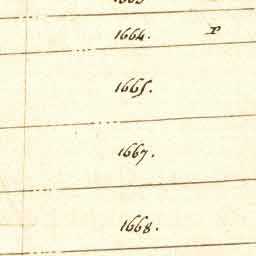 1664. P
1665.
1667.
1668.